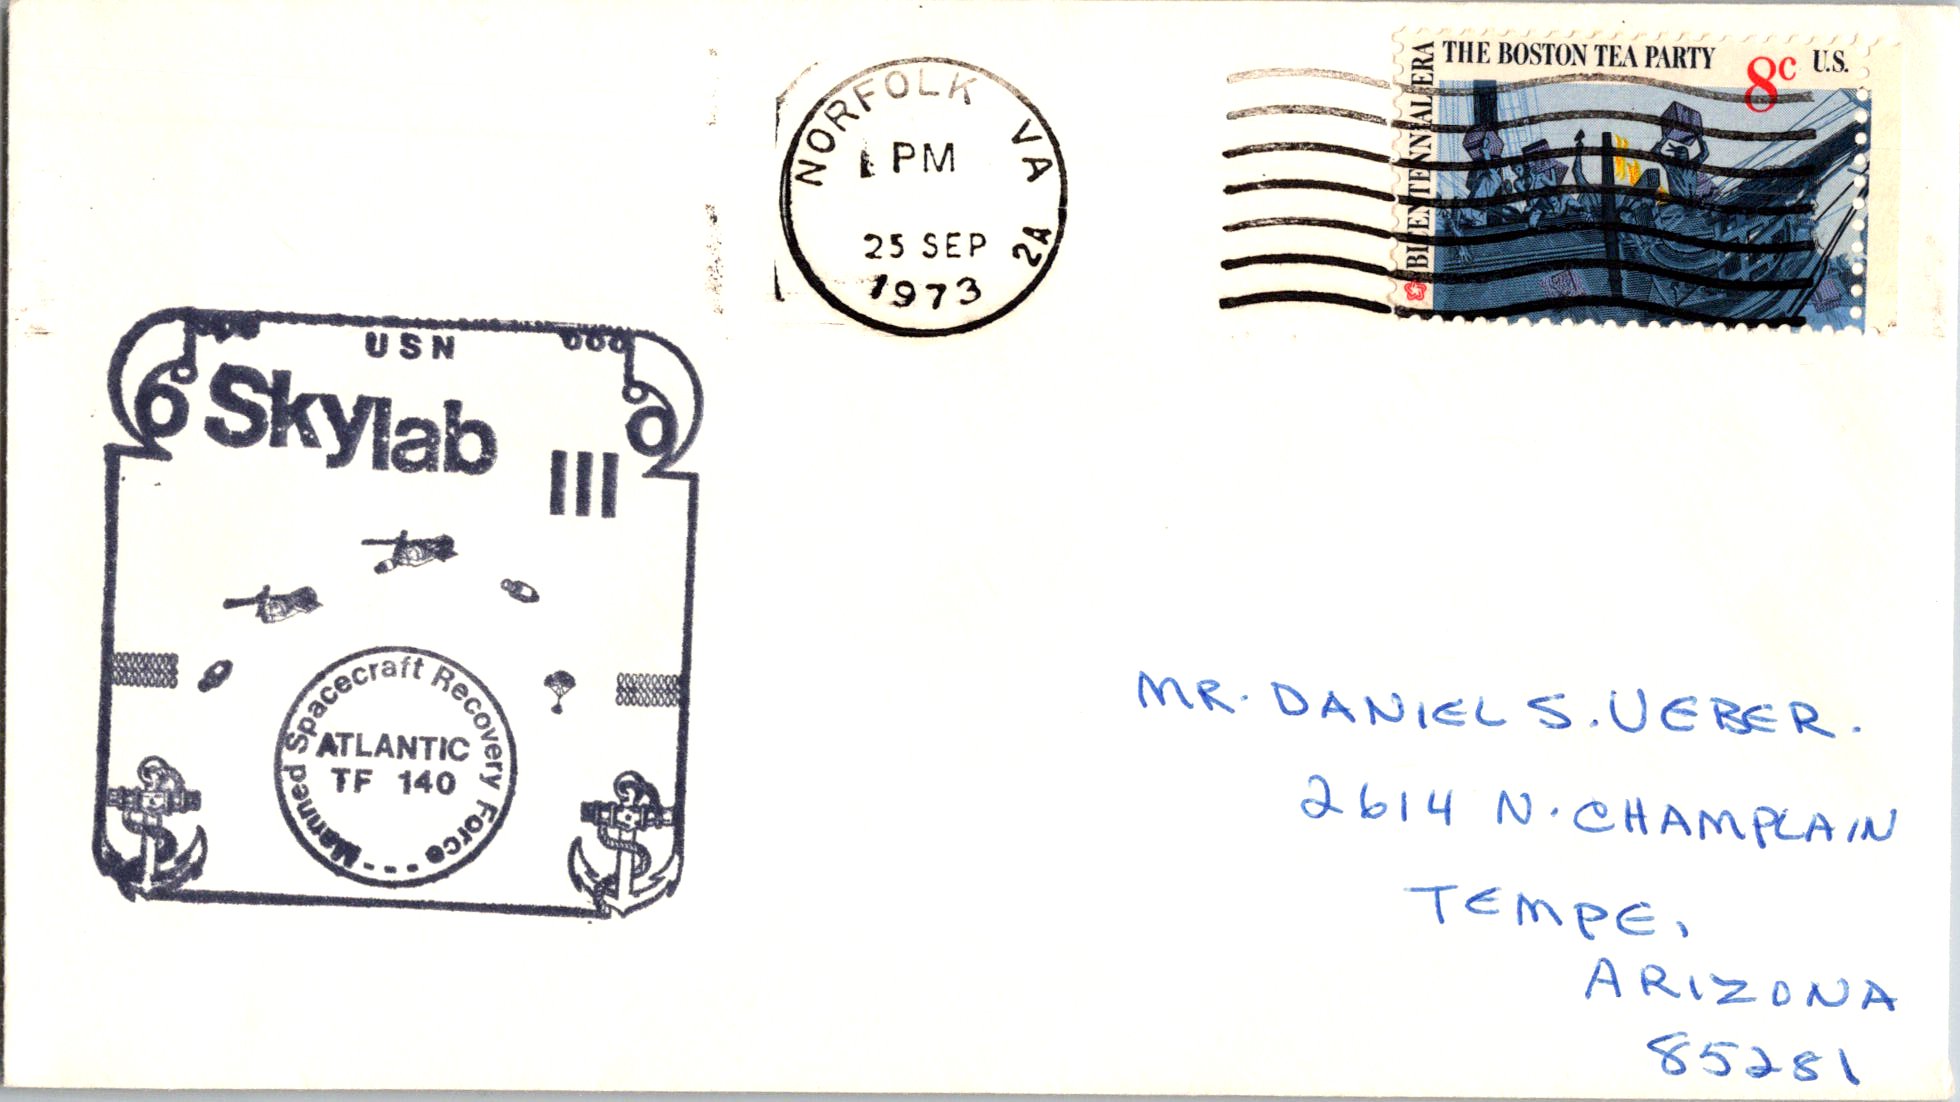 THE BOSTON TEA PARTY 8c U.S.
BICENTENNIAL ERA
NORFOLK VA
PM
25 SEP
1973
2A
USN
Skylab
III
Manned Spacecraft Recovery Force
ATLANTIC
TF 140
MR. DANIEL S. UEBER.
2614 N. CHAMPLAIN
TEMPE,
ARIZONA
85281